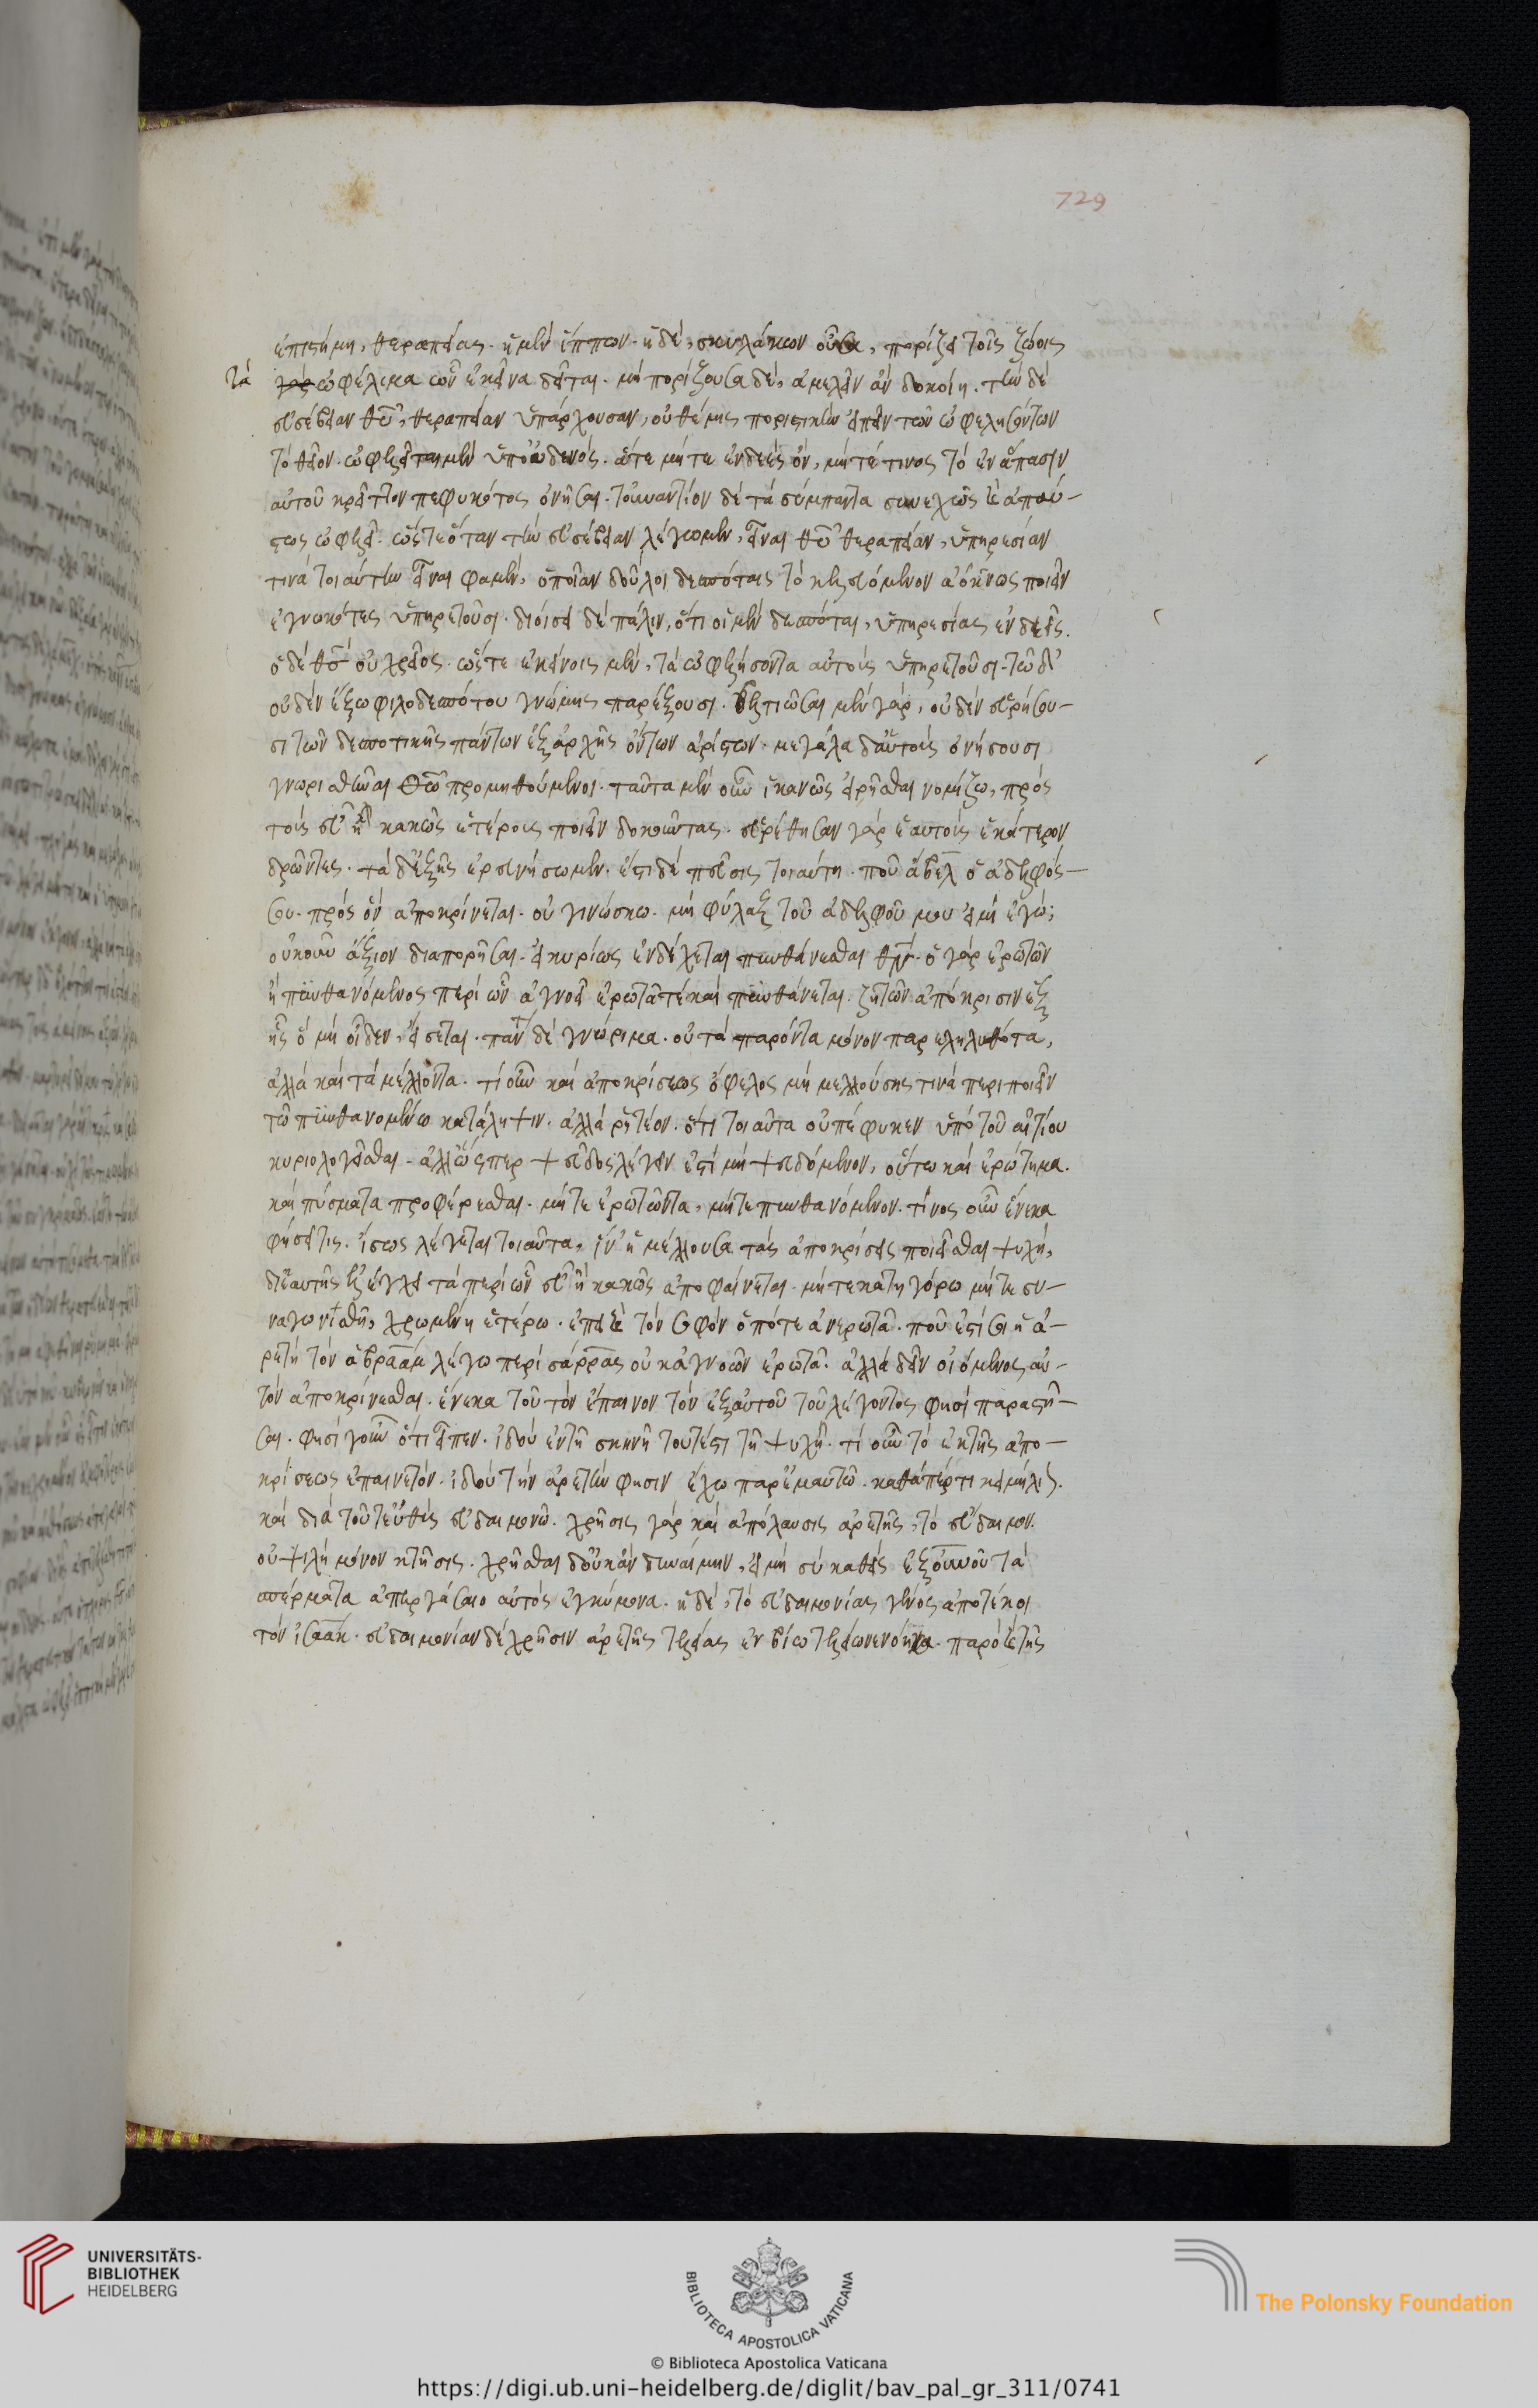 729
ἐπιστήμη, θεραπείας. ἡ μὲν ἵππων. ἡ δὲ, σκυλάκων οὖσα, πορίζει τοῖς ζώοις
τὰ
ὠφέλιμα ὧν ἐκεῖνα δεῖται. μὴ πορίζουσα δὲ, ἀμελεῖν ἂν δοκοίη. τὴν δὲ
εὐσέβειαν θυ, θεραπείαν ὑπάρχουσαν, οὐ θέμις ποριστικὴν εἰπεῖν τῶν ὠφελησόντων
τὸ θεῖον. ὠφελεῖται μὲν ὑπ' οὐδενός. ἅτε μήτε ἐνδεὲς ὂν, μήτέ τινος τὸ ἐν ἅπασιν
αὐτοῦ κρεῖττον πεφυκότος ὀνῆσαι. τοὐναντίον δὲ τὰ σύμπαντα συνεχῶς καὶ ἀπαύ-
στως ὠφελεῖ. ὥστε ὅταν τὴν εὐσέβειαν λέγωμεν, εἶναι θυ θεραπείαν, ὑπηρεσίαν
τινὰ τοιαύτην εἶναι φαμὲν, ὁποίαν δοῦλοι δεσπόταις τὸ κελευόμενον ἀόκνως ποιεῖν
ἐγνωκότες ὑπηρετοῦσι. διοίσει δὲ πάλιν, ὅτι οἱ μὲν δεσπόται, ὑπηρεσίας ἐνδεεῖς.
ὁ δὲ θς οὐ χρεῖος. ὥστε ἐκείνοις μὲν, τὰ ὠφελήσοντα αὐτοὺς ὑπηρετοῦσι. τῷ δ'
οὐδὲν ἔξω φιλοδεσπότου γνώμης παρέξουσι. βελτιῶσαι μὲν γὰρ, οὐδὲν εὑρήσου-
σι τῶν δεσποτικῆς πάντων ἐξ ἀρχῆς ὄντων ἀρίστων. μεγάλα δ' αὑτοὺς ὀνήσουσι
γνωρισθῆναι θεῷ προμηθούμενοι. ταῦτα μὲν οὖν ἱκανῶς εἰρῆσθαι νομίζω, πρὸς
τοὺς εὖ ἢ κακῶς ἑτέρους ποιεῖν δοκοῦντας. εὑρέθησαν γὰρ ἑαυτοὺς ἑκάτερον
δρῶντες. τὰ δ' ἑξῆς ἐρευνήσωμεν. ἔστι δὲ πεῦσις τοιαύτη. ποῦ ἄβελ ὁ ἀδελφός-
σου. πρὸς ὃν ἀποκρίνεται. οὐ γινώσκω. μὴ φύλαξ τοῦ ἀδελφοῦ μου εἰμὶ ἐγώ;
οὐκοῦν ἄξιον διαπορῆσαι. εἰ κυρίως ἐνδέχεται πυνθάνεσθαι θν. ὁ γὰρ ἐρωτῶν
ἢ πυνθανόμενος περὶ ὧν ἀγνοεῖ ἐρωτᾷ τὲ καὶ πυνθάνεται. ζητῶν ἀπόκρισιν ἐξ
ἧς ὃ μὴ οἶδεν, εἴσεται. παντὶ δὲ γνώριμα. οὐ τὰ παρόντα μόνον παρεληλυθότα,
ἀλλὰ καὶ τὰ μέλλοντα. τί οὖν καὶ ἀποκρίσεως ὄφελος μὴ μελλούσης τινὰ περιποιεῖν
τῷ πυνθανομένῳ κατάληψιν. ἀλλὰ ῥητέον. ὅτι τοιαῦτα οὐ πέφυκεν ὑπὸ τοῦ αἰτίου
κυριολογεῖσθαι. ἀλλ' ὥσπερ ψεῦδος λέγειν ἐστὶ μὴ ψευδόμενον, οὕτω καὶ ἐρώτημα.
καὶ πύσματα προφέρεσθαι. μήτε ἐρωτῶντα, μήτε πυνθανόμενον. τίνος οὖν ἕνεκα
φήσει τις. ἴσως λέγεται τοιαῦτα, ἵν' ἡ μέλλουσα τὰς ἀποκρίσεις ποιεῖσθαι ψυχή,
δι' ἑαυτῆς ἐξελέγχει τὰ περὶ ὧν εὖ ἢ κακῶς ἀποφαίνεται. μήτε κατηγόρῳ μήτε συ-
ναγωνιστῇ, χρωμένη ἑτέρῳ. ἐπεὶ καὶ τὸν σοφὸν ὁπότε ἀνερωτᾷ. ποῦ ἐστί σοι ἡ ἀ-
ρετὴ τὸν ἀβραὰμ λέγω περὶ σάρρας οὐκ ἀγνοῶν ἐρωτᾷ. ἀλλὰ δεῖν οἰόμενος αὐ-
τὸν ἀποκρίνεσθαι. ἕνεκα τοῦ τὸν ἔπαινον τὸν ἐξ αὐτοῦ τοῦ λέγοντος φησί παραστῆ-
σαι. φησὶ γοῦν ὅτι εἶπεν. ἰδοὺ ἐν τῇ σκηνῇ τουτέστι τῇ ψυχῇ. τί οὖν τὸ ἐκ τῆς ἀπο-
κρίσεως ἐπαινετόν. ἰδοὺ τὴν ἀρετὴν φησιν ἔχω παρ' ἐμαυτῷ. καθάπέρ τι κειμήλιον.
καὶ διὰ τοῦτ' εὐθὺς εὐδαιμονῶ. χρῆσις γὰρ καὶ ἀπόλαυσις ἀρετῆς, τὸ εὔδαιμον.
οὐ ψιλὴ μόνον κτῆσις. χρῆσθαι δ' οὐκ ἂν δυναίμην, εἰ μὴ σὺ καθεὶς ἐξ οὐνοῦ τὰ
σπέρματα ἀπεργάσαιο αὐτὸς ἐγκύμονα. ἡ δὲ, τὸ εὐδαιμονίας γένος ἀποτέκοι
τὸν ἰσαάκ. εὐδαιμονίαν δὲ χρῆσιν ἀρετῆς τελείας ἐν βίῳ τελείῳ νενόηκα. παρὸ καὶ τῆς
UNIVERSITÄTS-
BIBLIOTHEK
HEIDELBERG
BIBLIOTECA APOSTOLICA VATICANA
The Polonsky Foundation
© Biblioteca Apostolica Vaticana
https://digi.ub.uni-heidelberg.de/diglit/bav_pal_gr_311/0741